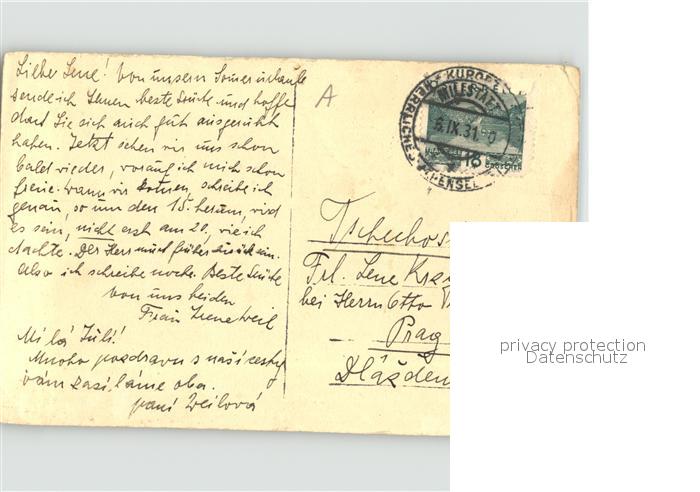 Liebe Lene! Von unserm Somerurlaube
sende ich Ihnen beste Grüße und hoffe
dass Sie sich auch gut ausgeruht
haben. Jetzt sehen wir uns schon
bald wieder, worauf ich mich schon
freue. Wann wir kommen, schreibe ich
genau, so um den 15. herum, wird
es sein, nicht erst am 20, wie ich
dachte. Der Herr muss früher zurück sein.
Also ich schreibe noch. Beste Grüße
von uns beiden
Frau Irene Weil
Milá Julí!
Mnoho pozdravu s naší cesty
vám zasíláme oba.
paní Weilová
A
KURORT
MILLSTATT
6.IX.31
HERRLICHER
ALPENSEE
16
GROSCHEN
Tschechos
Frl. Lene
bei Herrn Otto
Prag
Dlážden
privacy protection
Datenschutz